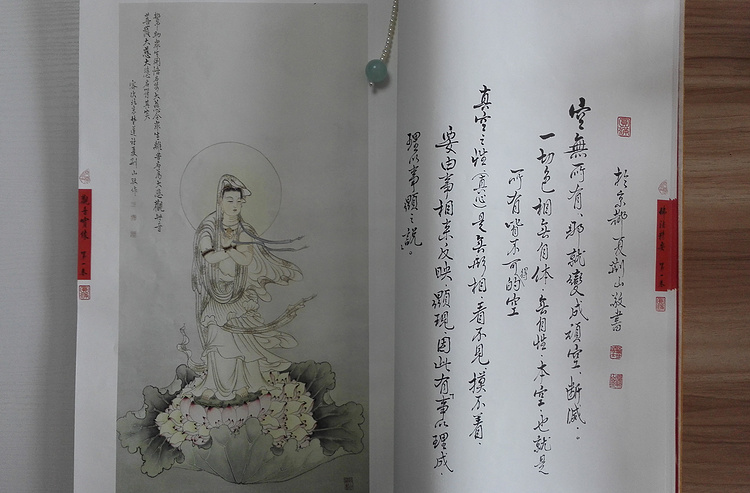 於京都夏荆山敬書
空無所有、那就變成頑空、斷滅。
一切色相無自体、無自性、本空、也就是
所有皆不可得的空
真空之性(真心)是無形相、看不見、摸不着、
要由事相来反映、顯現、因此有「事以理成、
理以事顯」之說。
菩薩大慈大悲名符其實
夏荆山敬作